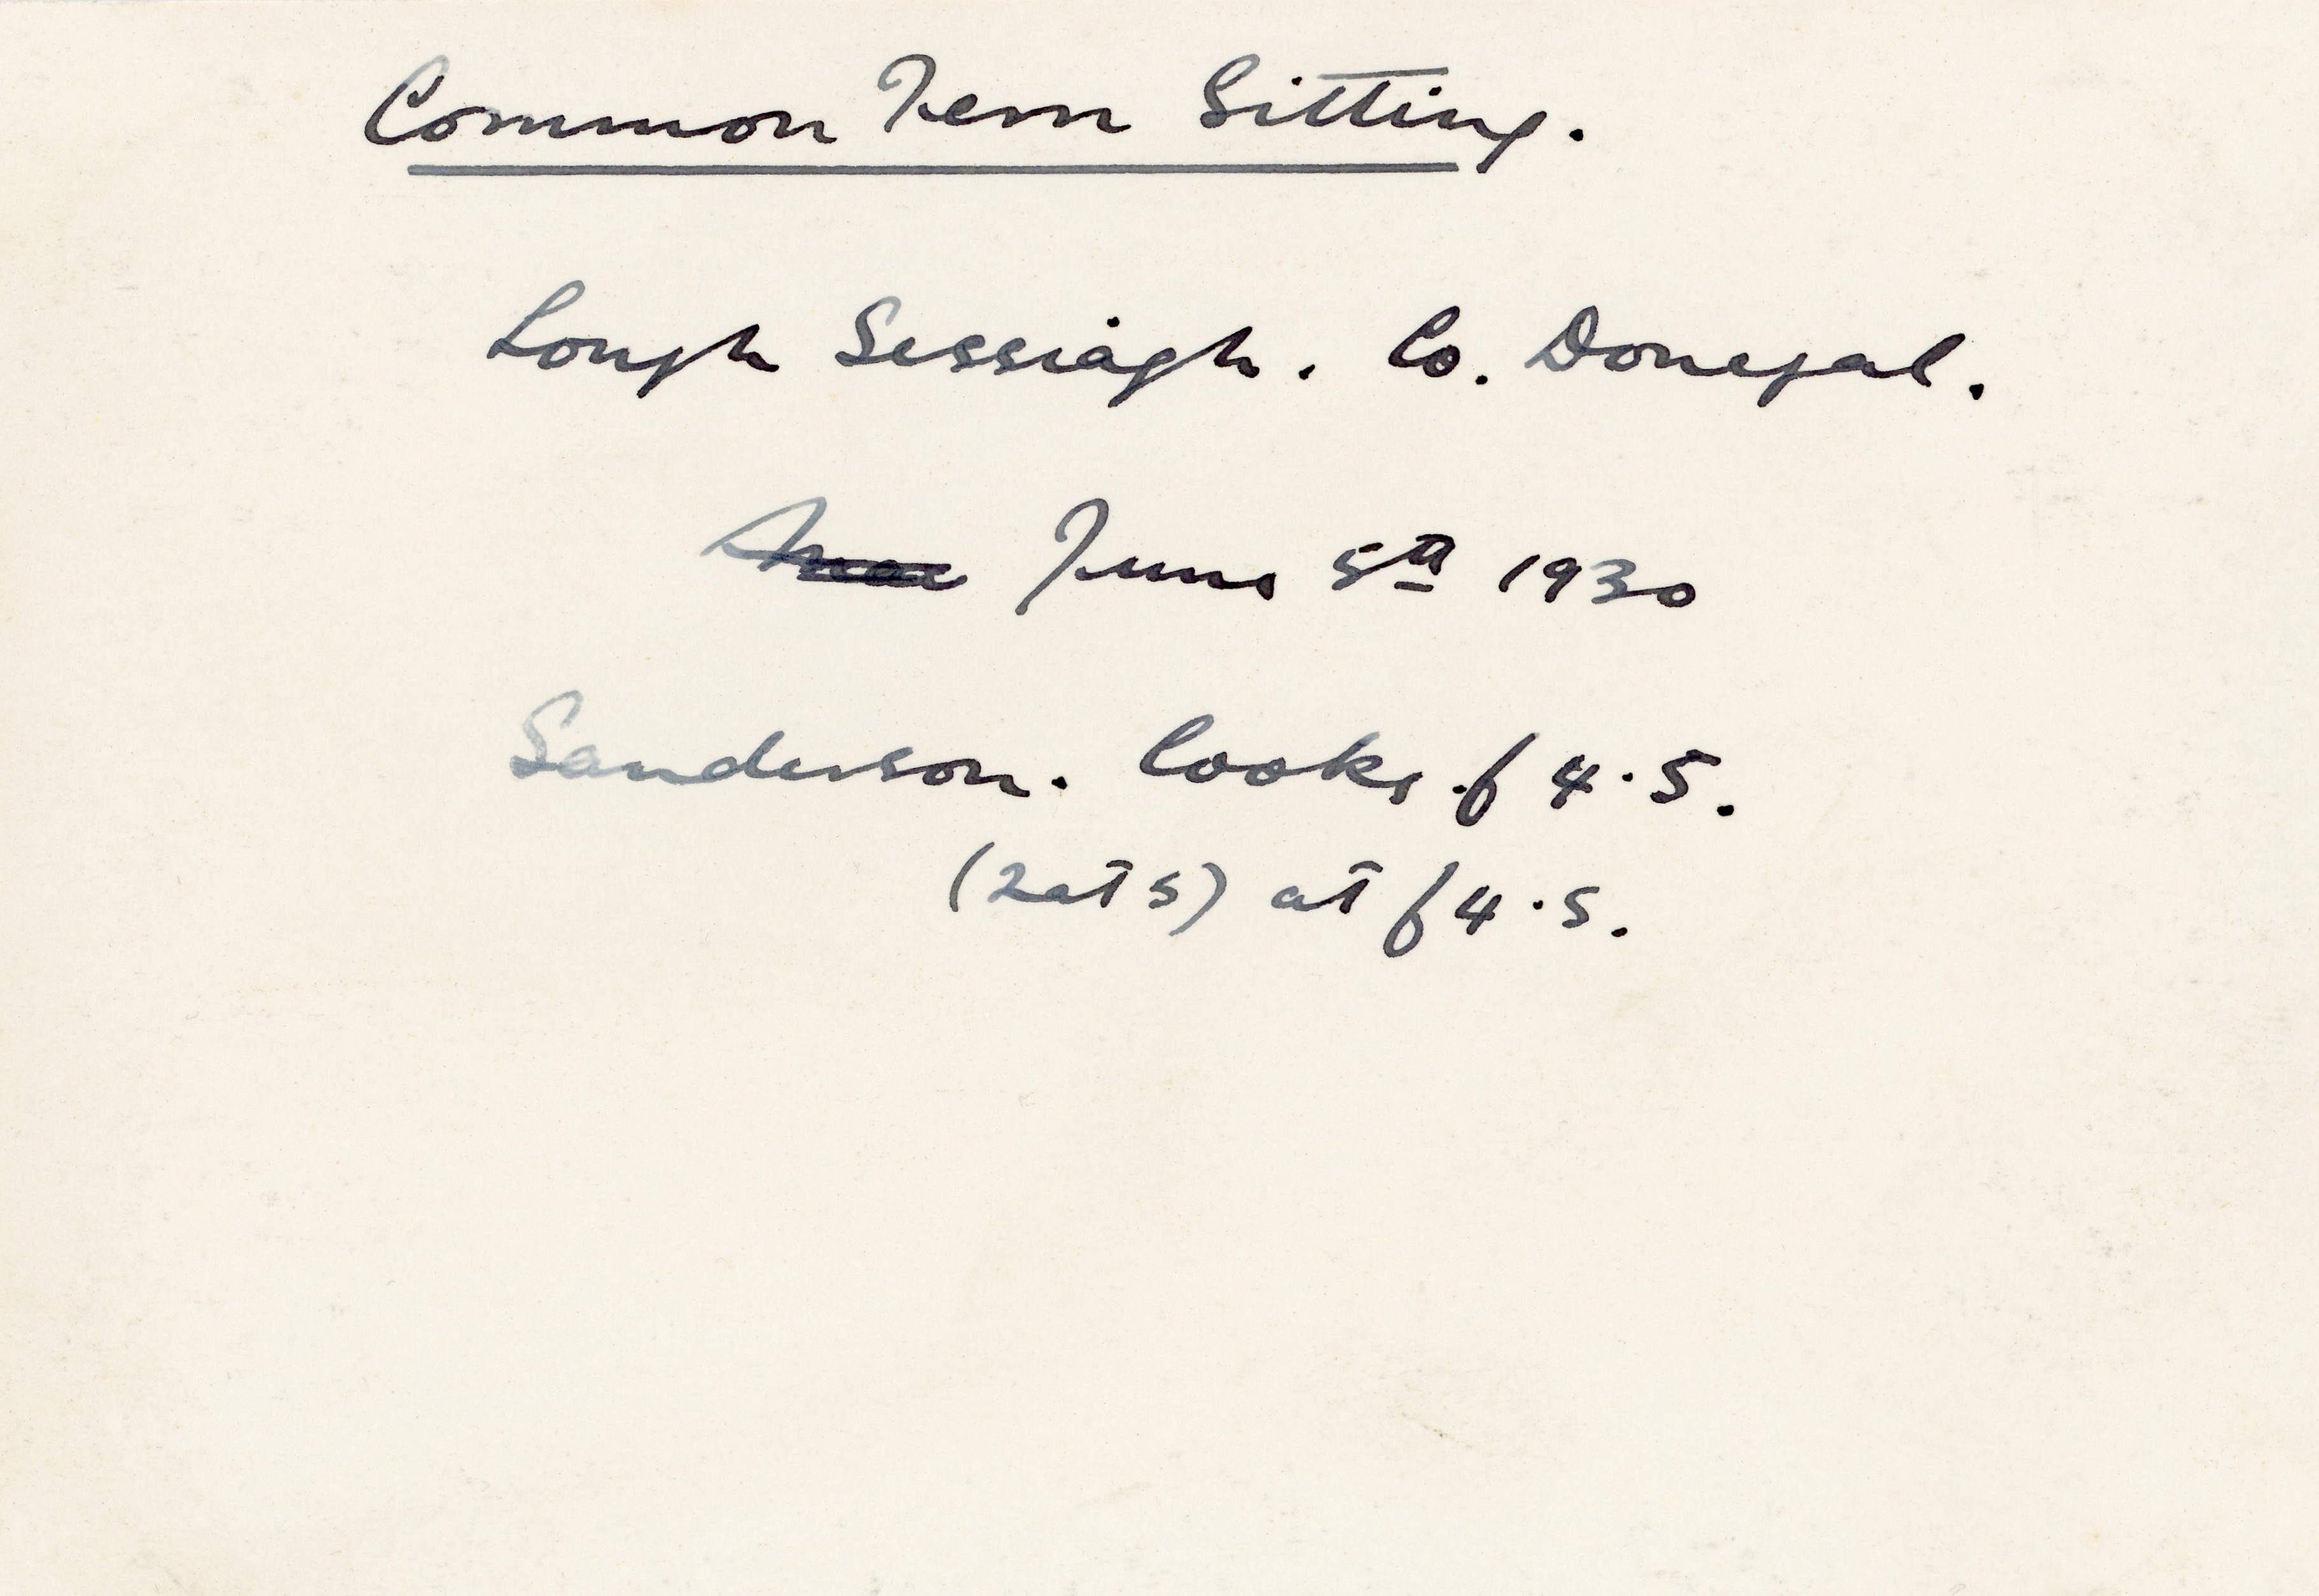 Common Tern Sitting.
Lough Sessiagh. Co. Donegal.
June 5th 1930
Sanderson. Cooke f 4.5.
(2 at 5) at f 4.5.